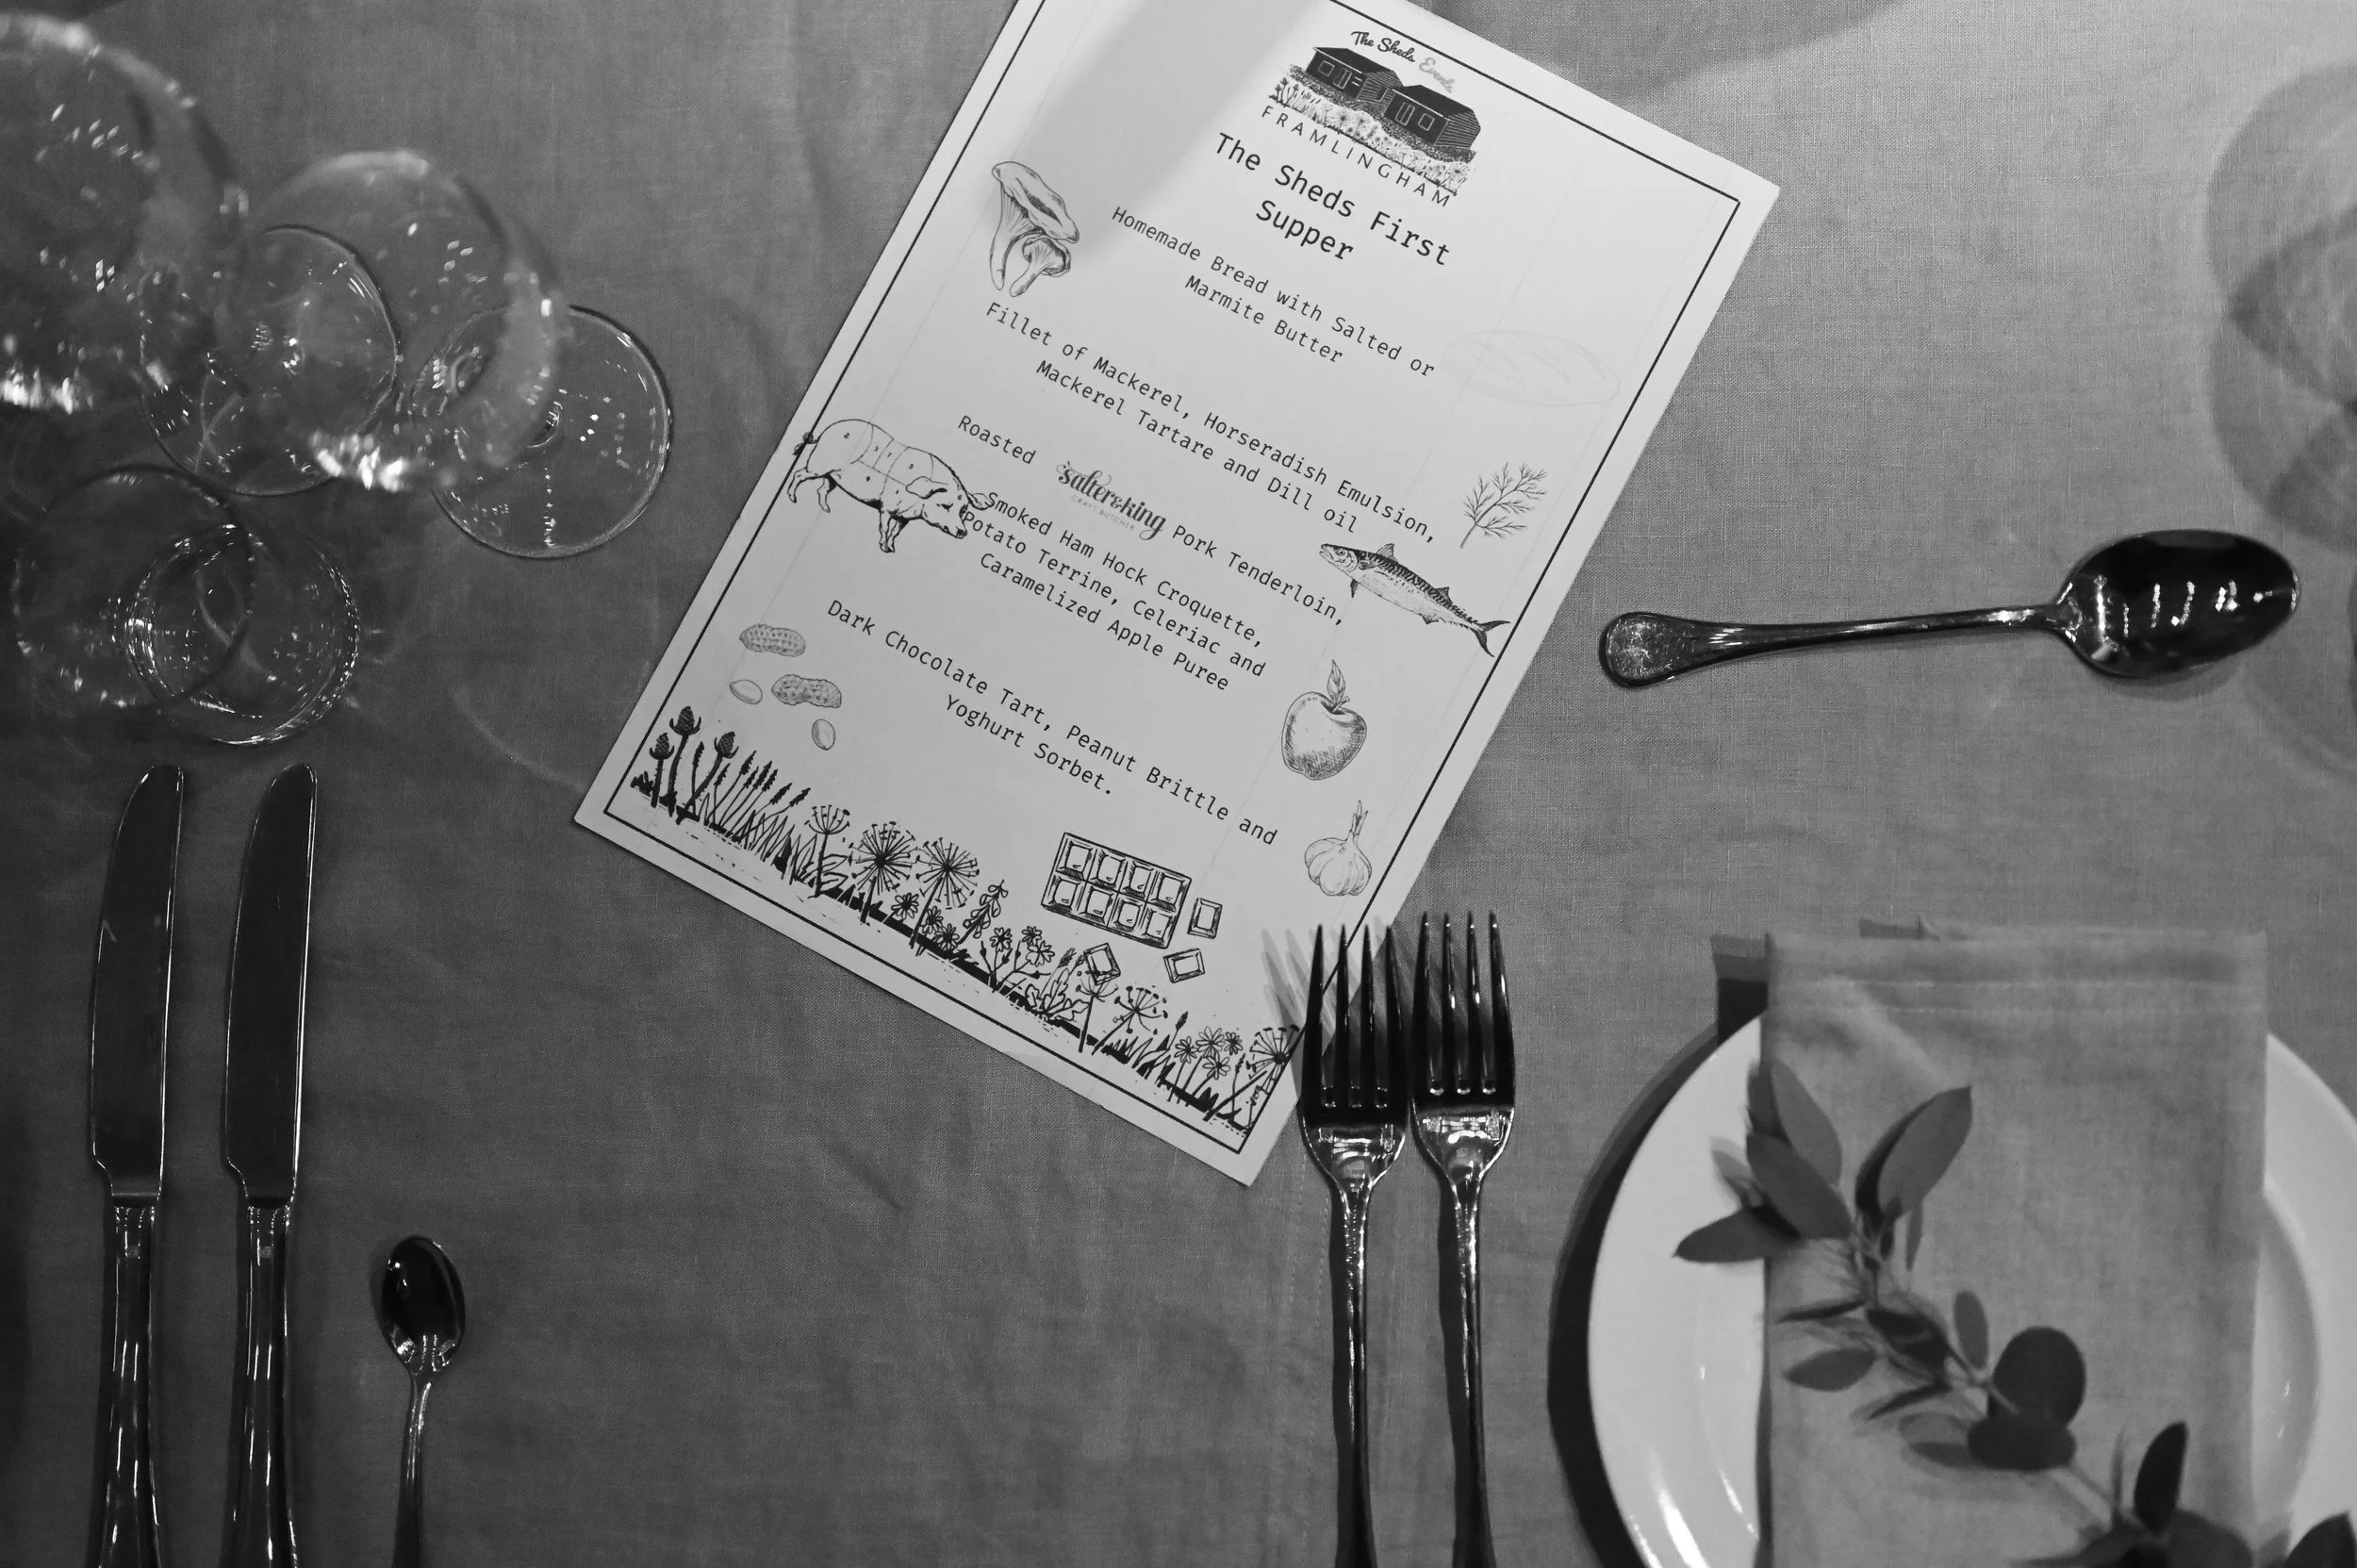 The Sheds Events
FRAMLINGHAM
The Sheds First
Supper
Homemade Bread with Salted or
Marmite Butter
Fillet of Mackerel, Horseradish Emulsion,
Mackerel Tartare and Dill oil
Roasted salter&king Pork Tenderloin,
CRAFT BUTCHER
Smoked Ham Hock Croquette,
Potato Terrine, Celeriac and
Caramelized Apple Puree
Dark Chocolate Tart, Peanut Brittle and
Yoghurt Sorbet.